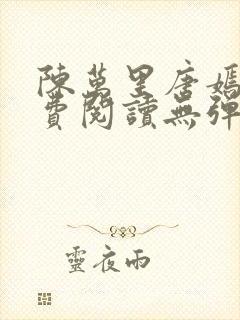 陳萬里唐嫣
費閱讀無彈
靈夜雨